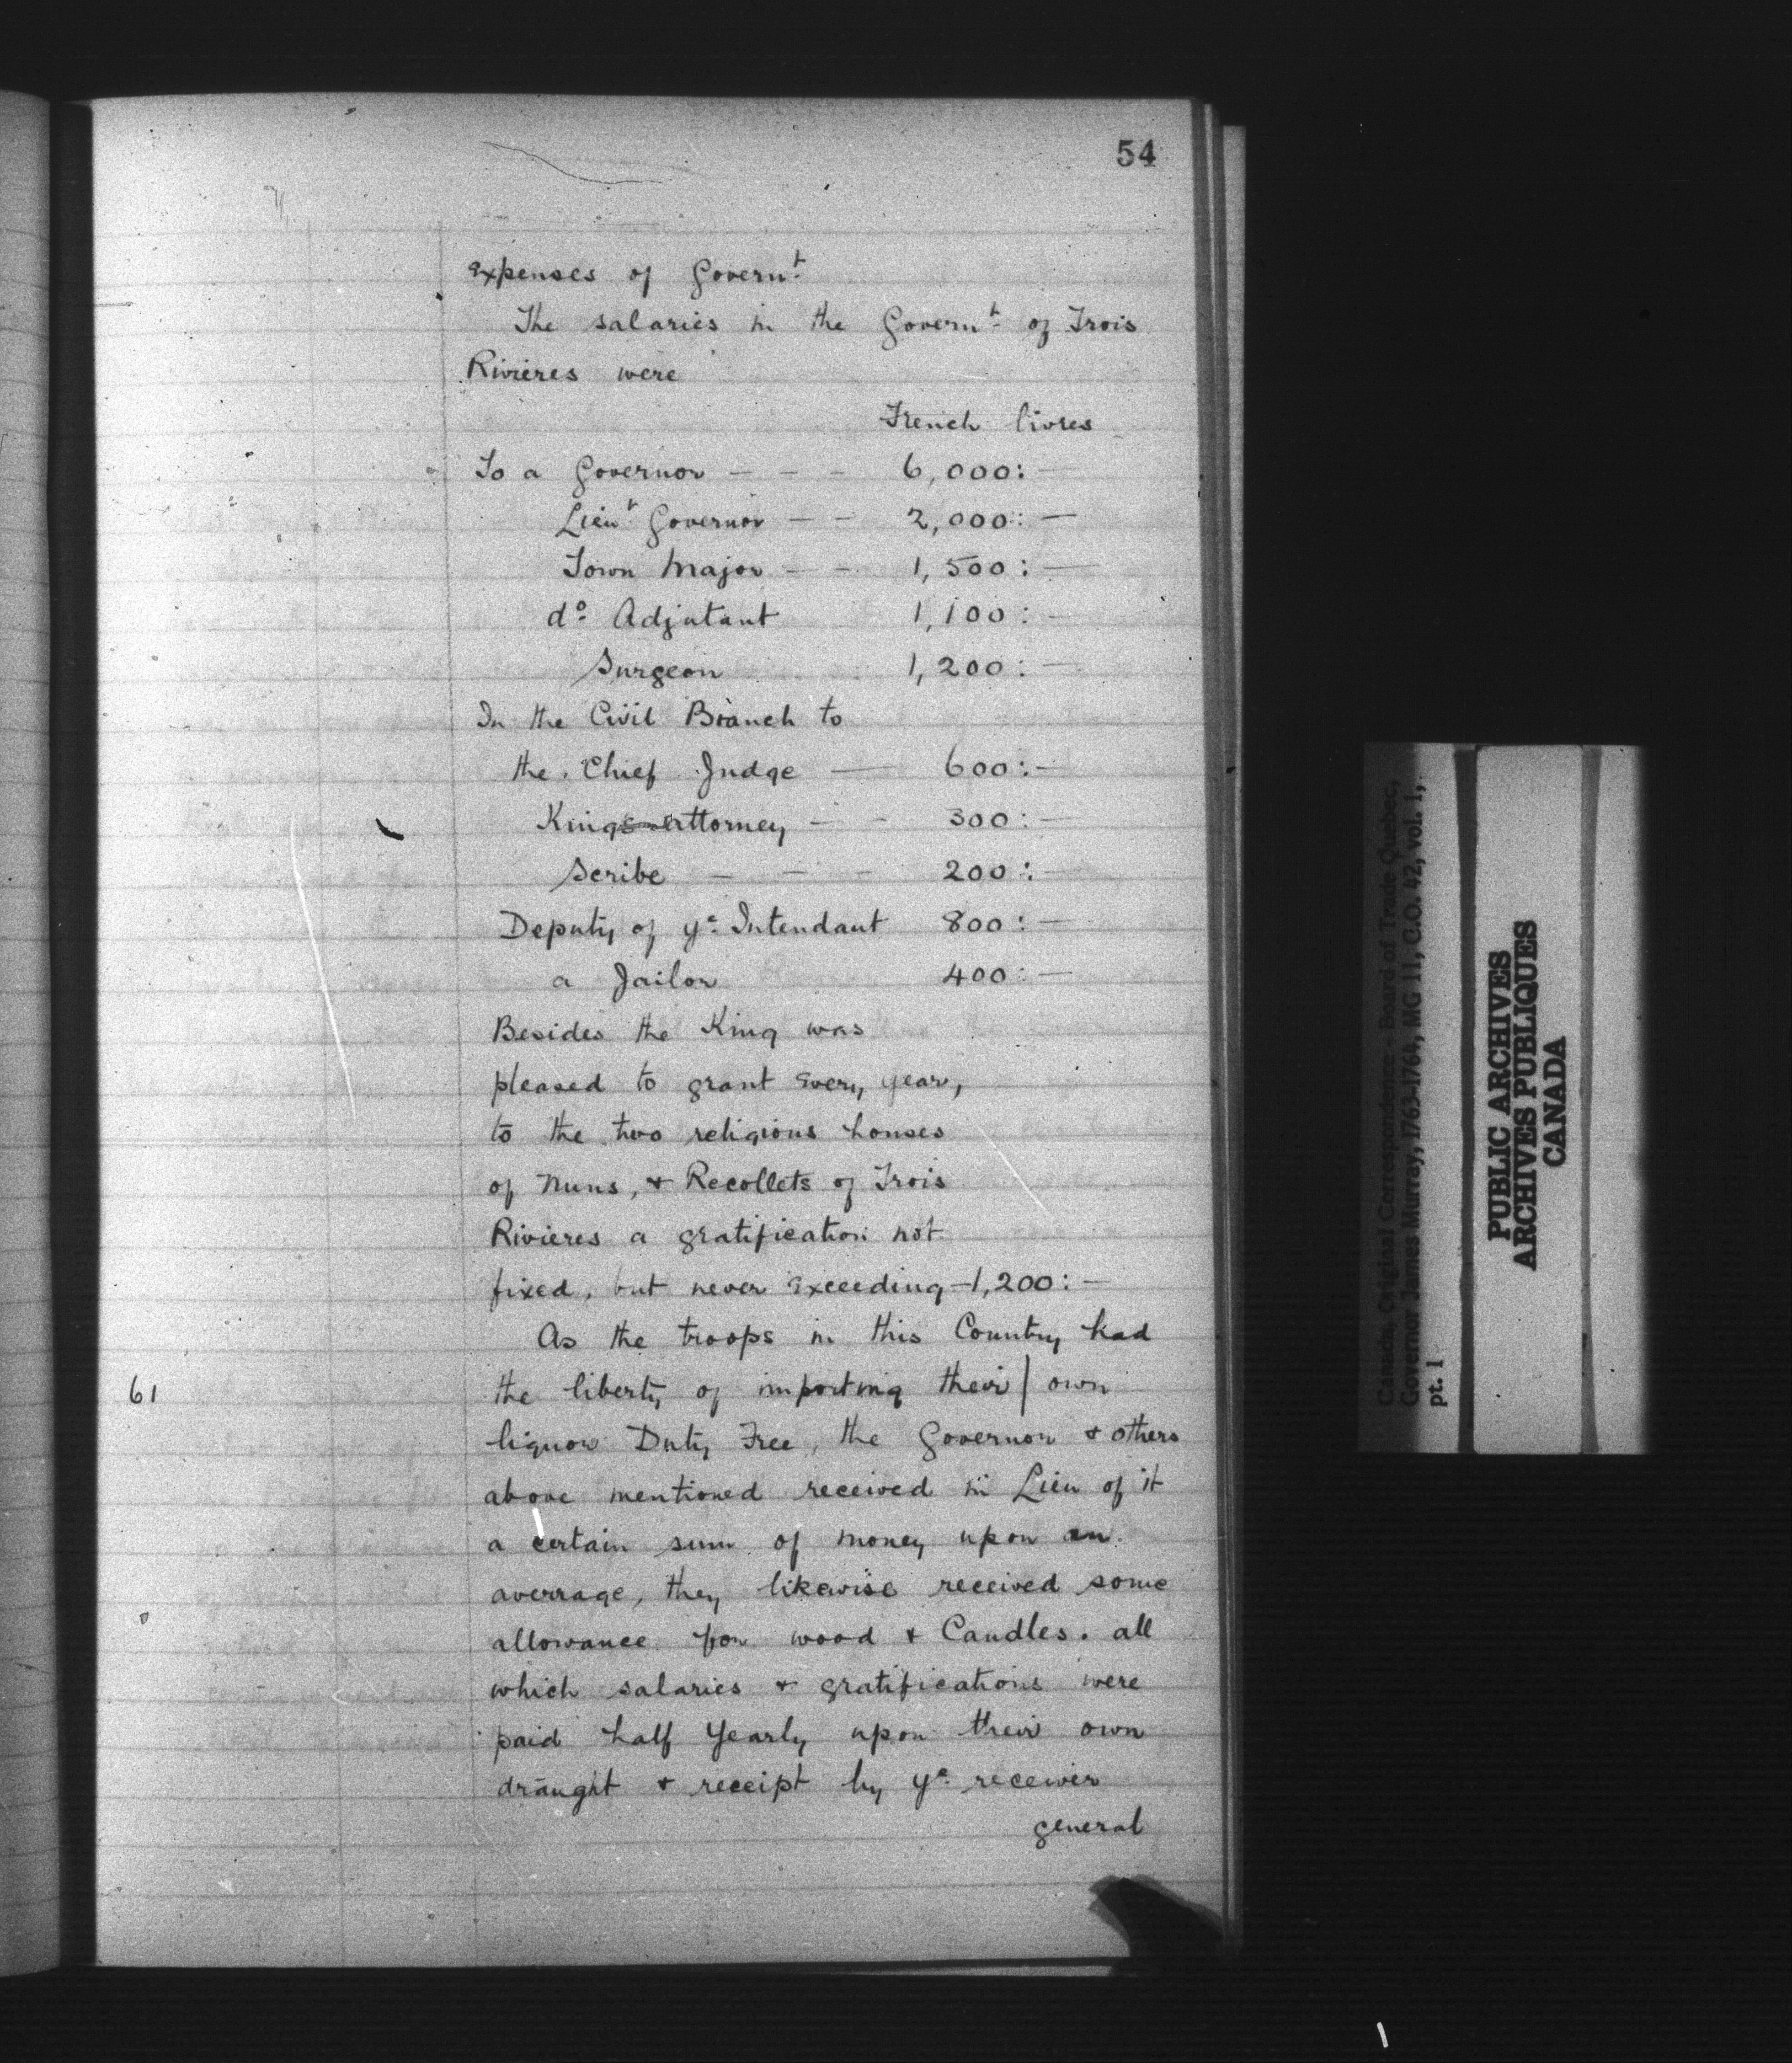 54
Expenses of Governt
The salaries in the Governt of Trois
Rivieres were
French livres
To a Governor — — — 6,000: —
Lieut Governor — — 2,000: —
Town Major — — 1,500: —
do Adjutant 1,100: —
Surgeon 1,200: —
In the Civil Branch to
the Chief Judge — 600: —
Kings Attorney — — 300: —
Scribe — — — 200: —
Deputy of ye Intendant 800: —
a Jailor 400: —
Besides the King was
pleased to grant every year,
to the two religious houses
of Nuns, & Recollets of Trois
Rivieres a gratification not
fixed, but never exceeding — 1,200: —
As the troops in this Country had
61 the liberty of importing their | own
liquor Duty Free, the Governor & others
above mentioned received in Lieu of it
a certain sum of money upon an
averrage, they likewise received some
allowance for wood & Candles. all
which salaries & gratifications were
paid half Yearly upon their own
draught & receipt by ye receiver
general
Canada, Original Correspondence - Board of Trade Quebec,
Governor James Murray, 1763-1764, MG 11, C.O. 42, vol. 1,
pt. 1
PUBLIC ARCHIVES
ARCHIVES PUBLIQUES
CANADA